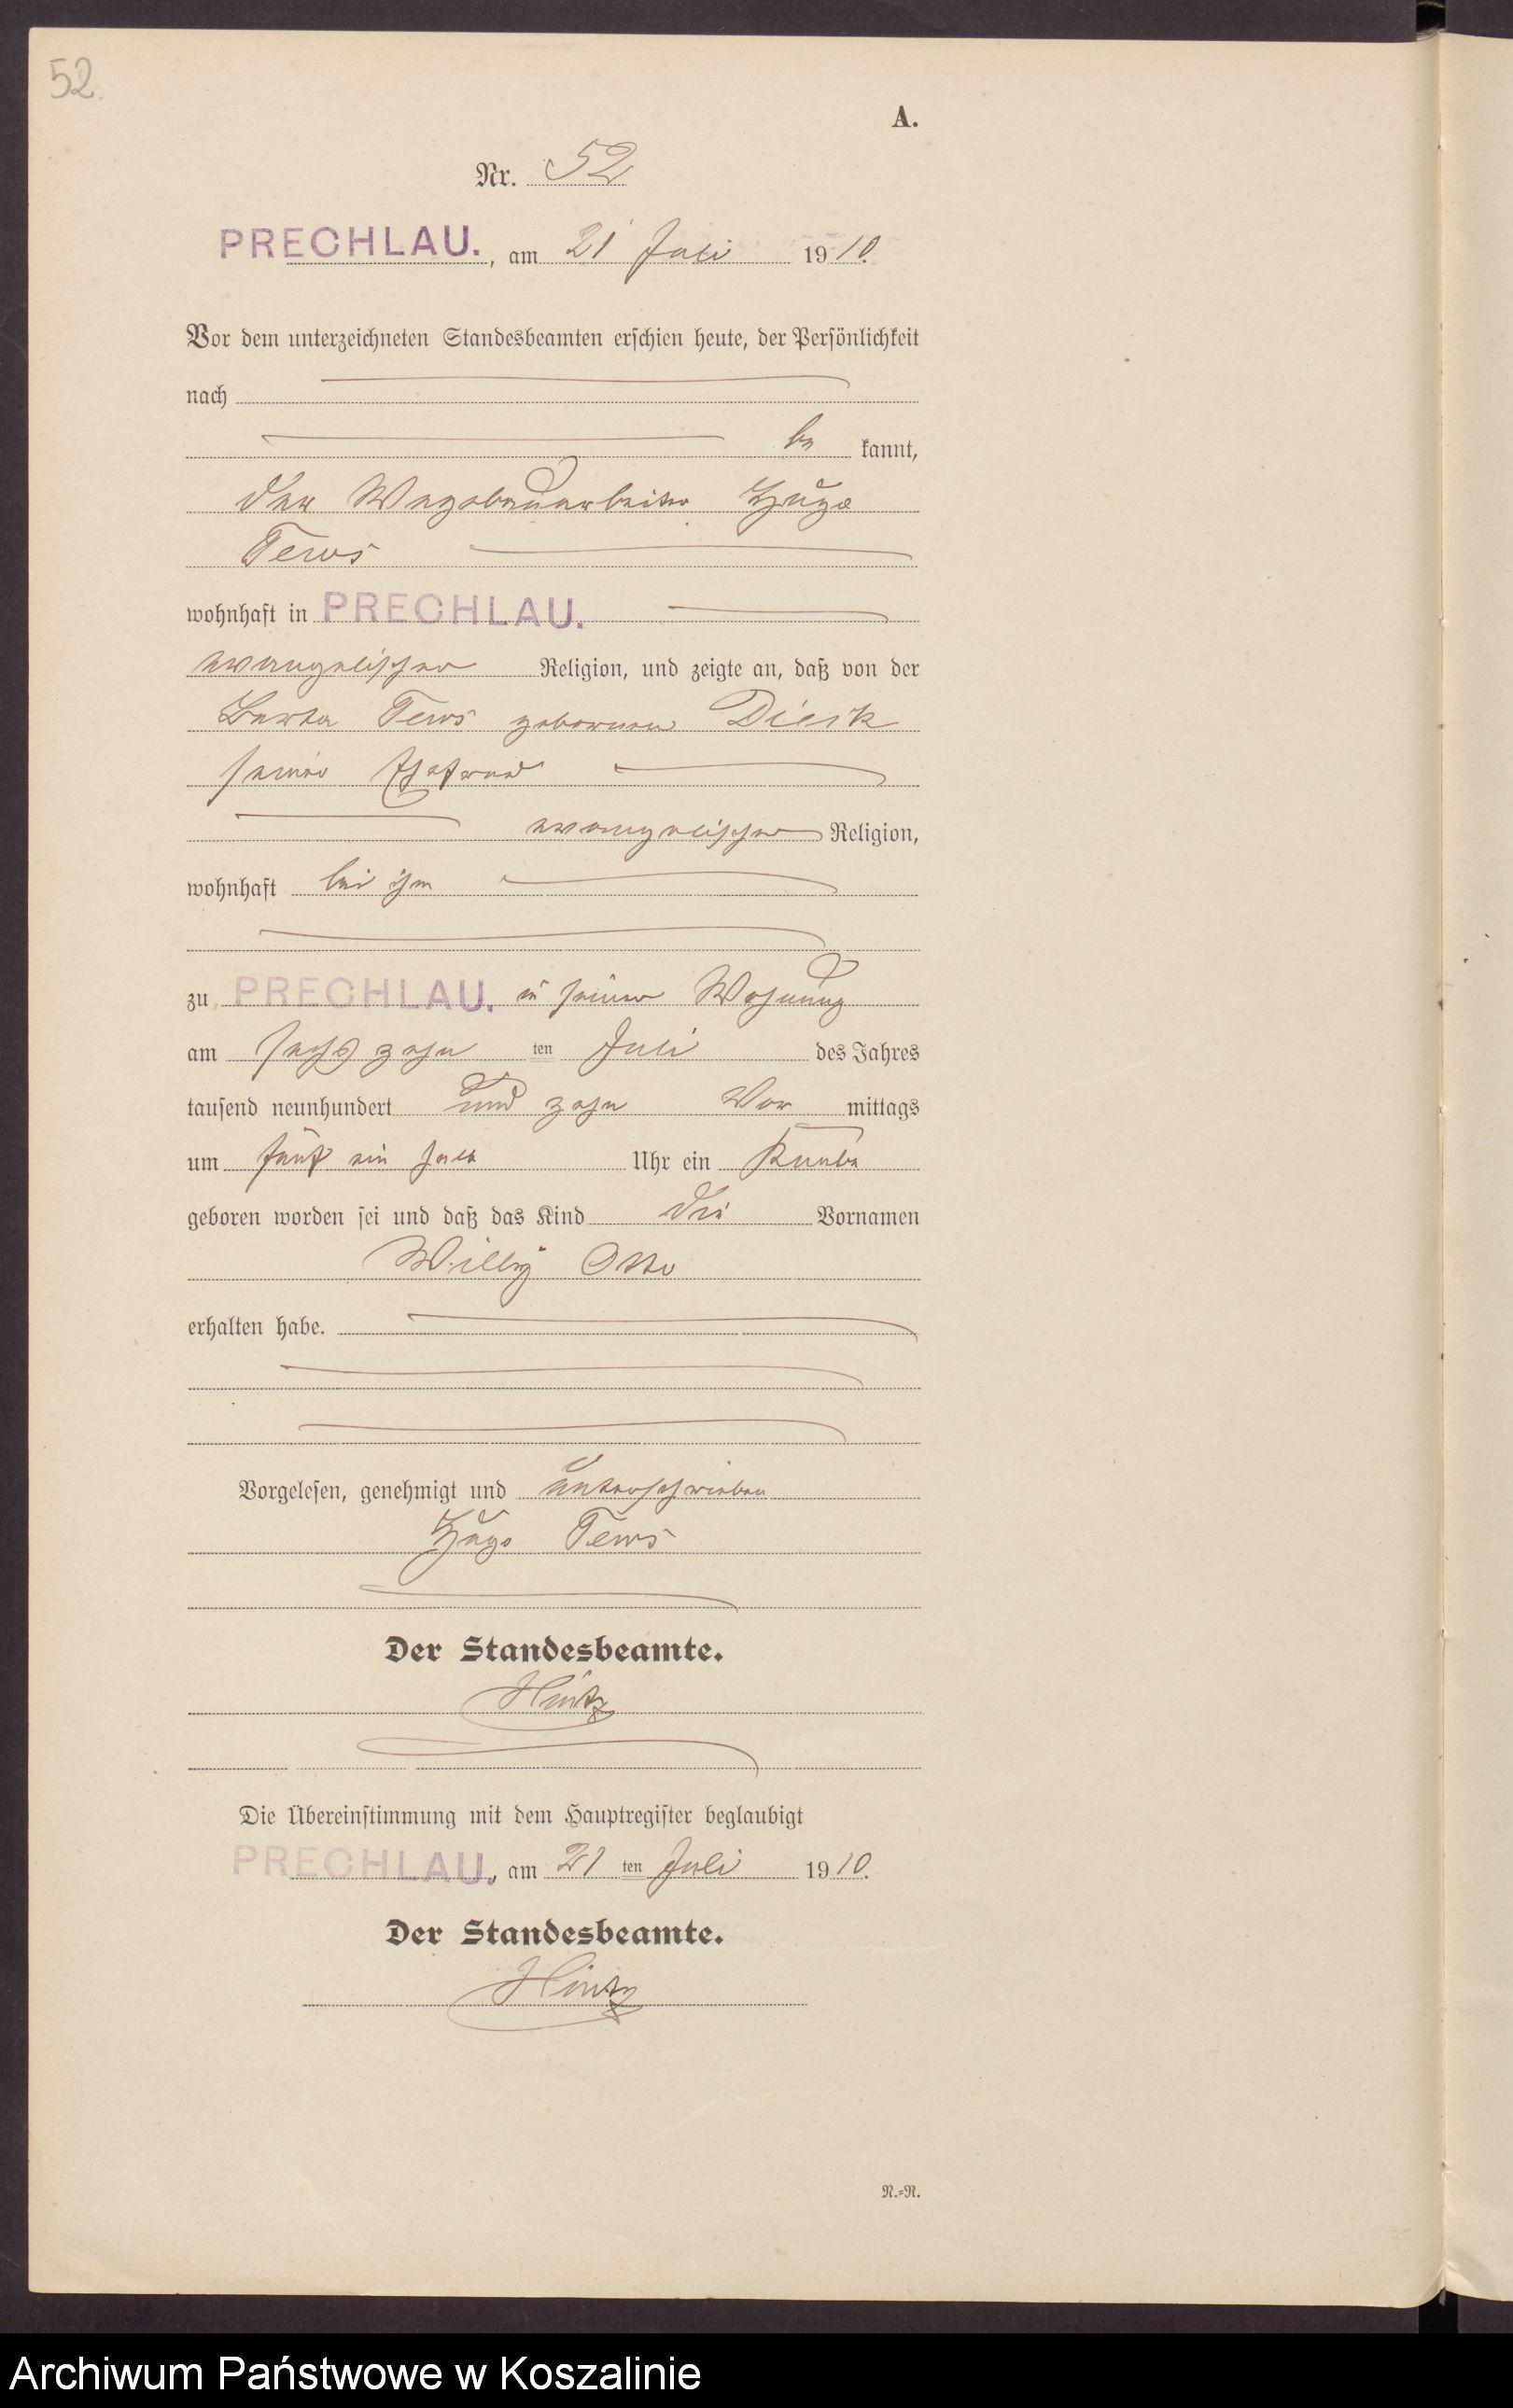 52.
A.
Nr. 52
PRECHLAU., am 21 Juli 1910.
Vor dem unterzeichneten Standesbeamten erschien heute, der Persönlichkeit
nach
be kannt,
der Wegebauarbeiter Hugo
Tews
wohnhaft in PRECHLAU.
evangelischer Religion, und zeigte an, daß von der
Berta Tews geborenen Dieck
seiner Ehefrau
evangelischer Religion,
wohnhaft bei ihm
zu PRECHLAU. in seiner Wohnung
am sechszehn ten Juli des Jahres
tausend neunhundert und zehn Vor mittags
um fünf ein halb Uhr ein Knabe
geboren worden sei und daß das Kind die Vornamen
Willy Otto
erhalten habe.
Vorgelesen, genehmigt und unterschrieben
Hugo Tews
Der Standesbeamte.
Hintz
Die Übereinstimmung mit dem Hauptregister beglaubigt
PRECHLAU., am 21 ten Juli 1910.
Der Standesbeamte.
Hintz
N.=R.
Archiwum Państwowe w Koszalinie